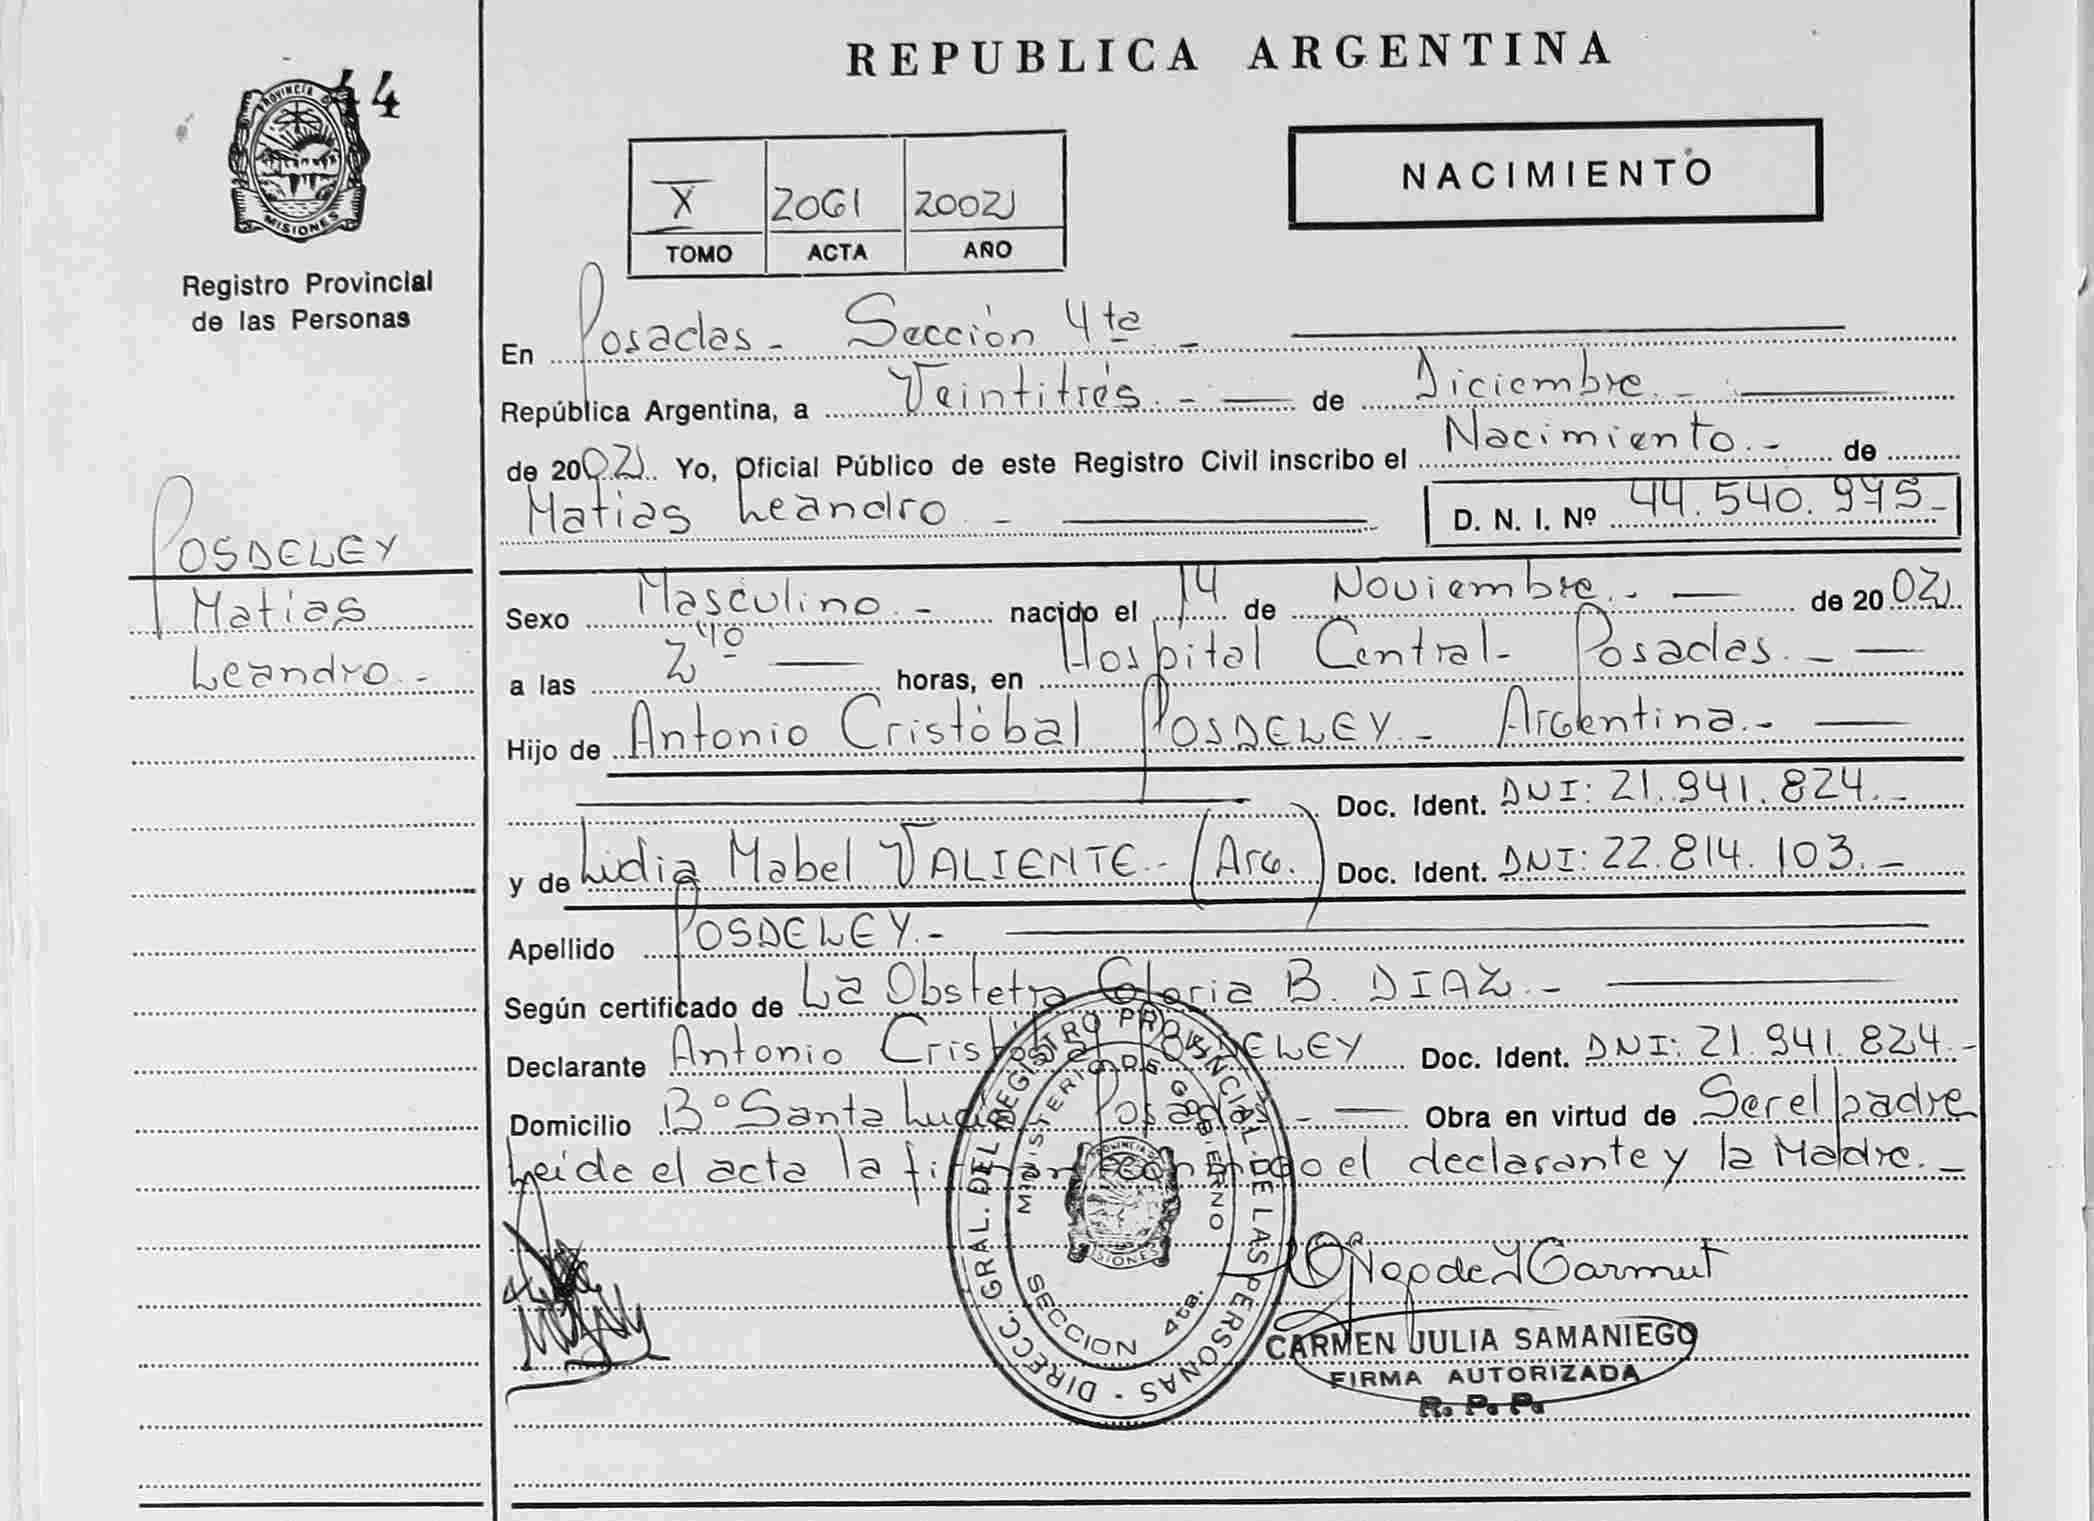 REPUBLICA ARGENTINA
44
PROVINCIA DE
MISIONES
Registro Provincial
de las Personas
X 2061 2002
TOMO ACTA AÑO
NACIMIENTO
En Posadas - Sección 4ta. -
República Argentina, a Veintitrés. - de Diciembre. -
de 2002. Yo, Oficial Público de este Registro Civil inscribo el Nacimiento. - de
Matias Leandro - D. N. I. Nº 44.540.975 -
POSDELEY
Matias
Leandro. -
Sexo Masculino. - nacido el 14 de Noviembre. - de 2002
a las 2 10 horas, en Hospital Central - Posadas. -
Hijo de Antonio Cristóbal POSDELEY. - Argentina. -
Doc. Ident. DNI: 21.941.824. -
y de Lidia Mabel VALIENTE. - (Arg.) Doc. Ident. DNI: 22.814.103. -
Apellido POSDELEY. -
Según certificado de La Obstetra Gloria B. DIAZ. -
Declarante Antonio Cristóbal POSDELEY Doc. Ident. DNI: 21.941.824. -
Domicilio Bº Santa Lucía - Posadas - Obra en virtud de Ser el padre
Leída el acta la firman conmigo el declarante y la Madre. -
DIRECC. GRAL. DEL REGISTRO PROVINCIAL DE LAS PERSONAS -
MINISTERIO DE GOBIERNO
SECCION 4ta.
CARMEN JULIA SAMANIEGO
FIRMA AUTORIZADA
R. P. P.